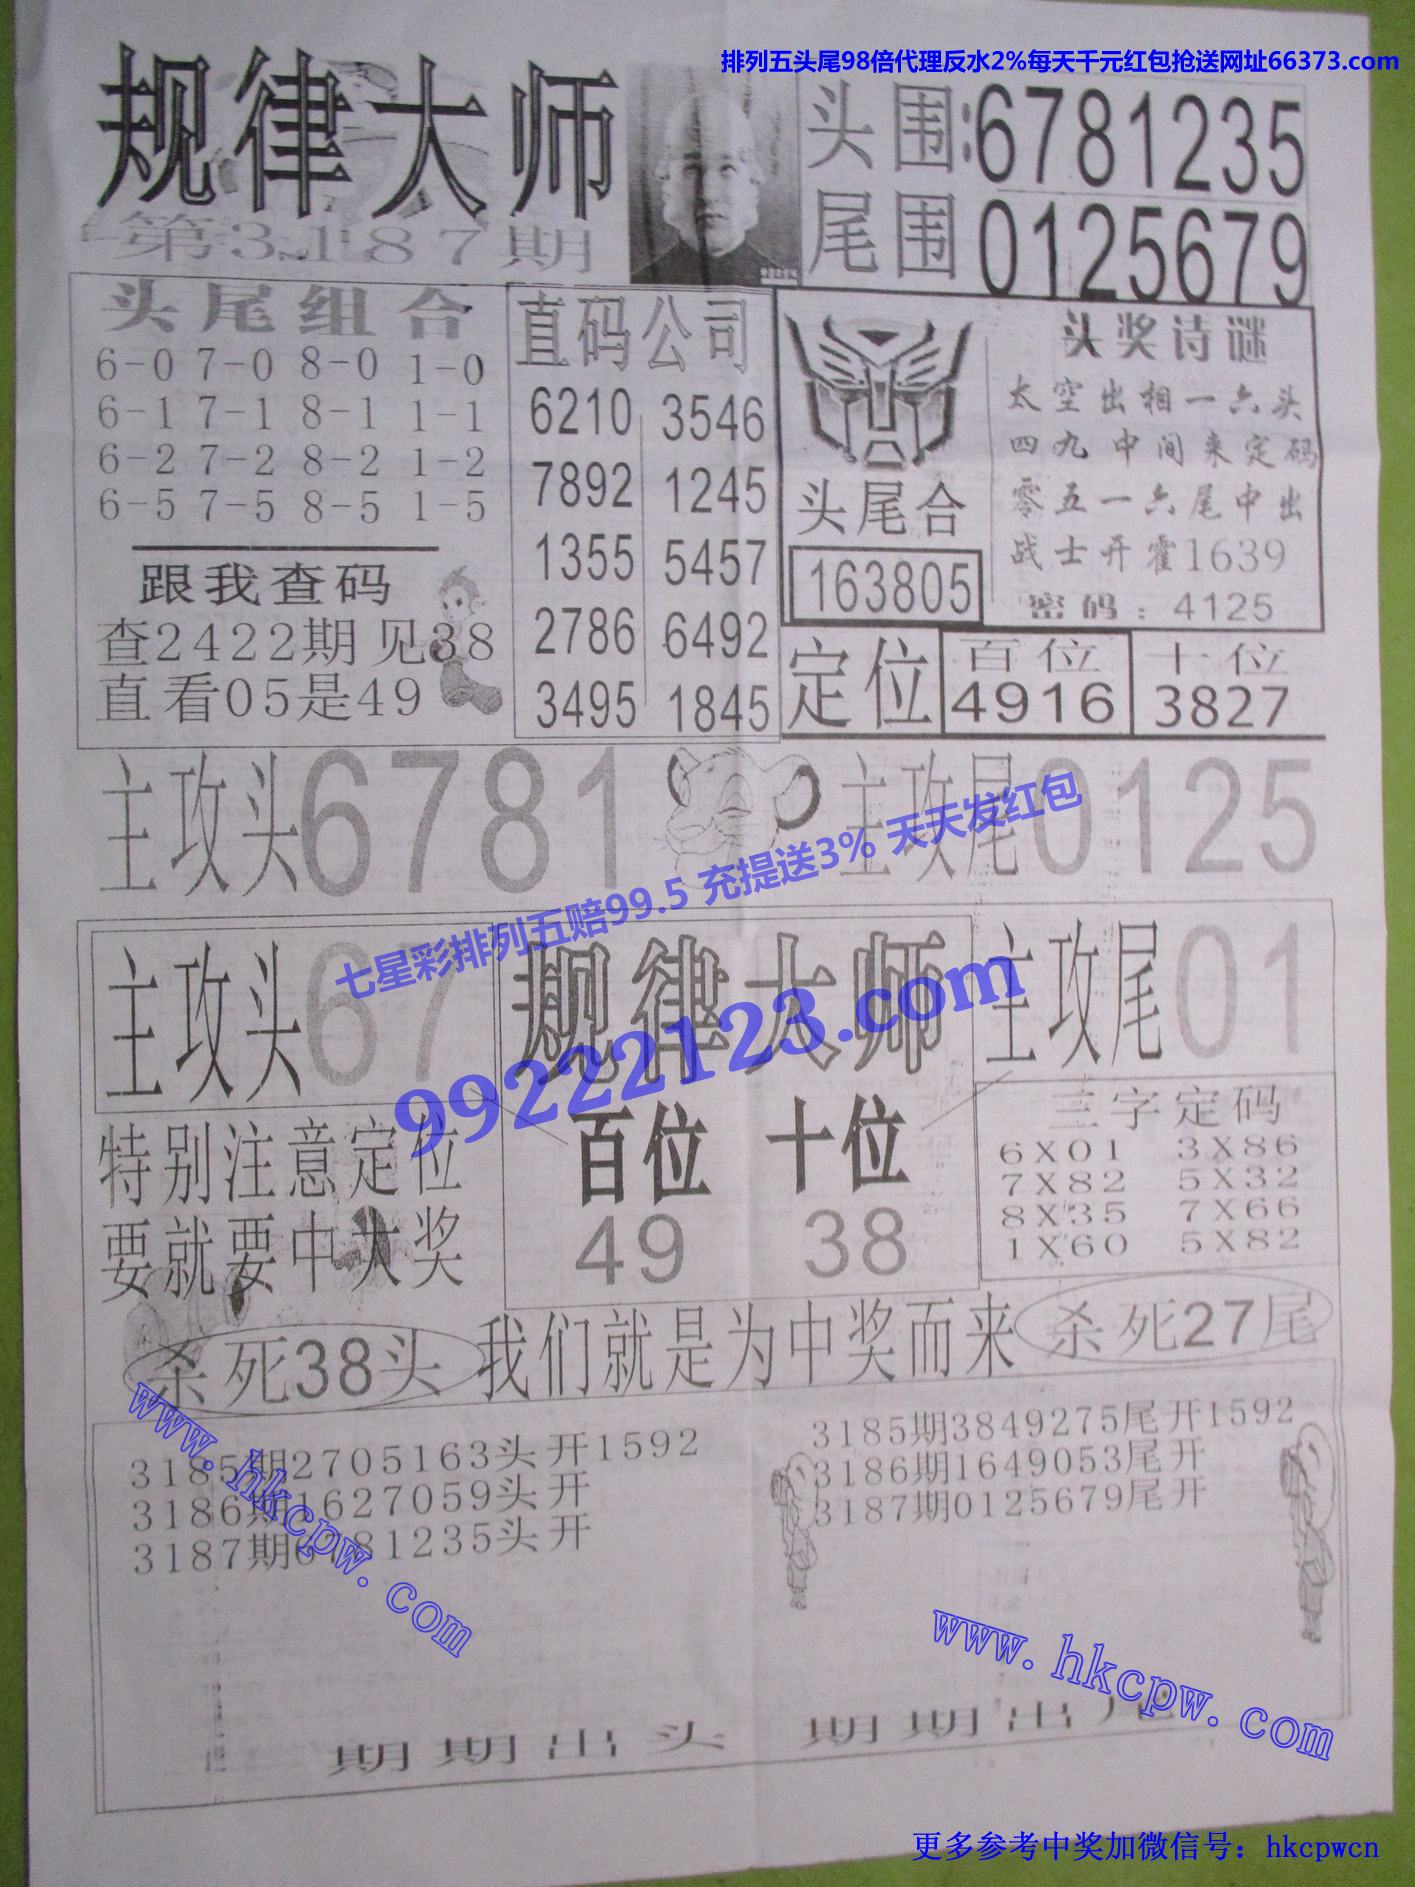 排列五头尾98倍代理反水2%每天千元红包抢送网址66373.com
规律大师
第3187期
头围:6781235
尾围0125679
头尾组合
6-0 7-0 8-0 1-0
6-1 7-1 8-1 1-1
6-2 7-2 8-2 1-2
6-5 7-5 8-5 1-5
跟我查码
查2422期见38
直看05是49
直码公司
6210 3546
7892 1245
1355 5457
2786 6492
3495 1845
头尾合
163805
头奖诗谜
太空出相一六头
四九中间来定码
零五一六尾中出
战士开霍1639
密码:4125
定位
百位
4916
十位
3827
主攻头6781
主攻尾0125
七星彩排列五赔99.5 充提送3% 天天发红包
99222123.com
主攻头67
规律大师
主攻尾01
特别注意定位
要就要中大奖
百位 十位
49 38
三字定码
6X01 3X86
7X82 5X32
8X35 7X66
1X60 5X82
杀死38头
我们就是为中奖而来
杀死27尾
3185期2705163头开1592
3186期1627059头开
3187期6781235头开
3185期3849275尾开1592
3186期1649053尾开
3187期0125679尾开
www.hkcpw.com
www.hkcpw.com
期期出头
期期出尾
更多参考中奖加微信号：hkcpwcn